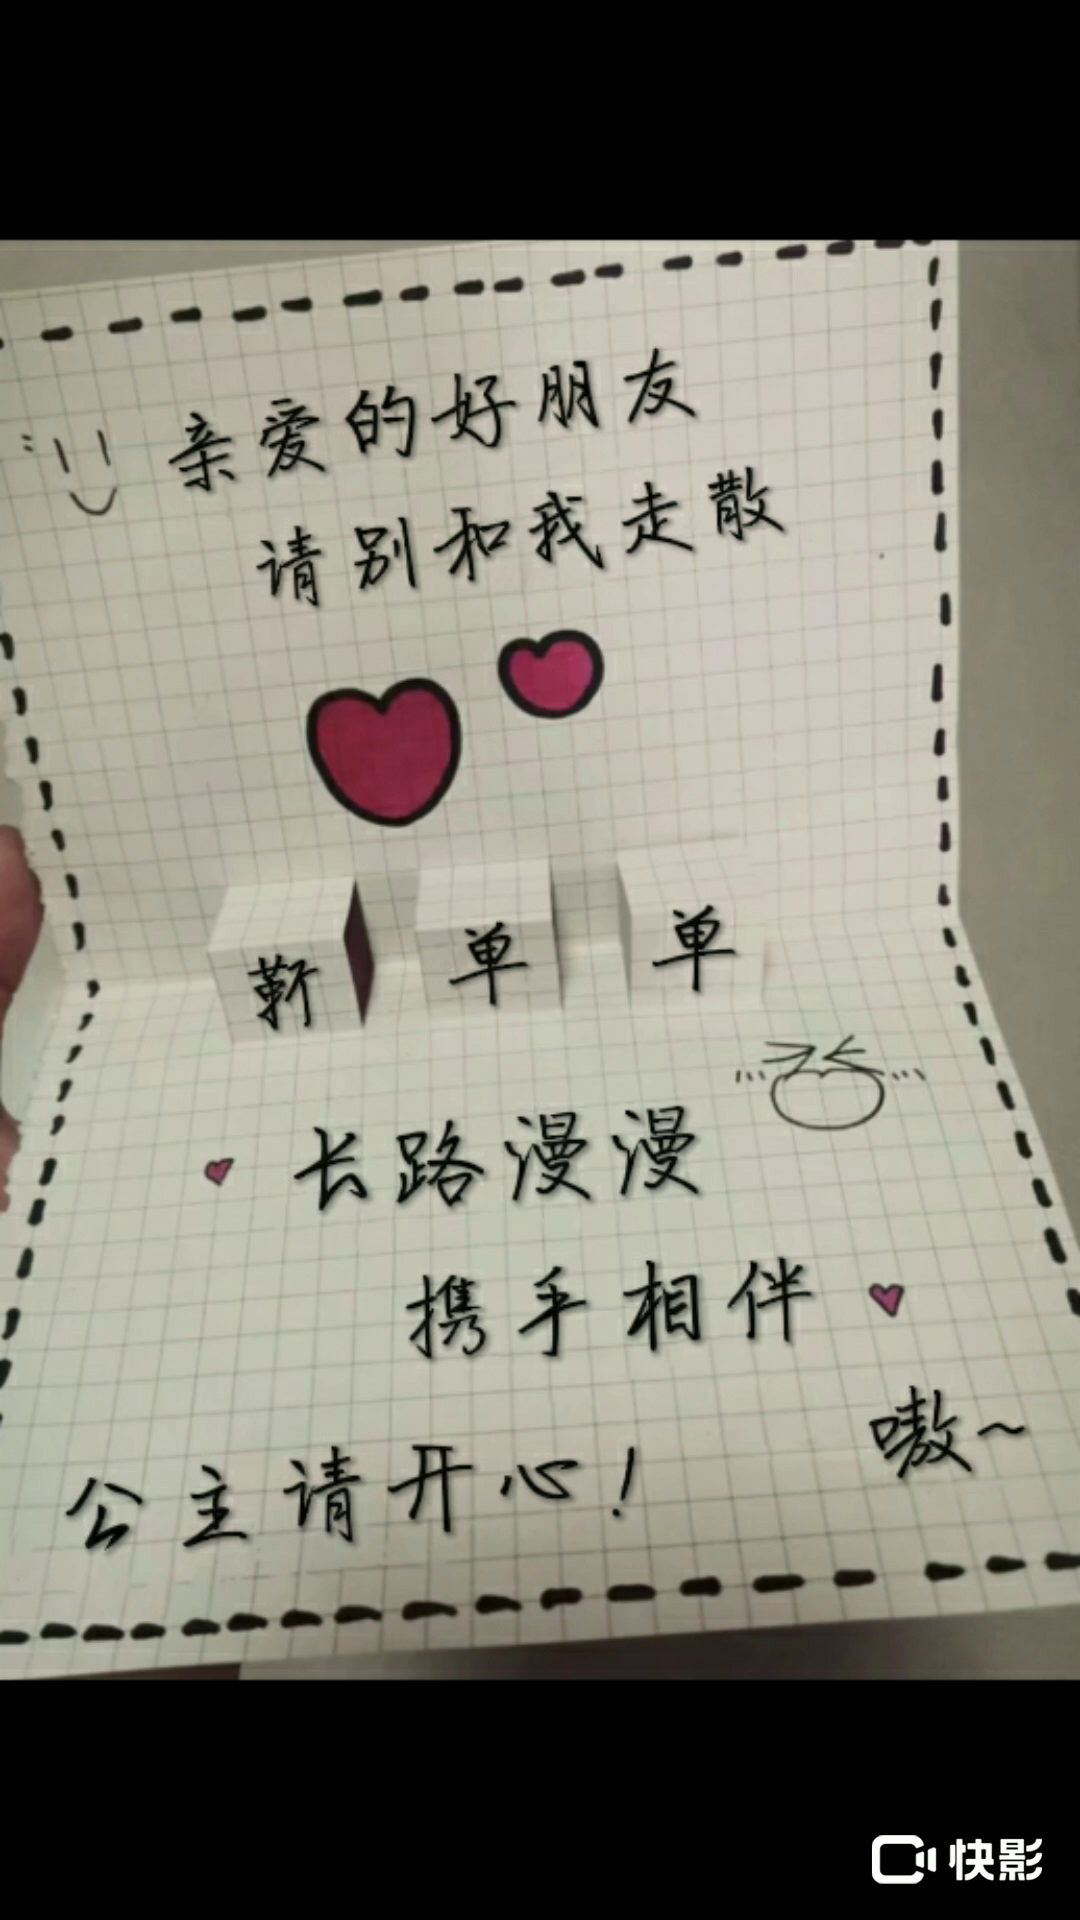 亲爱的好朋友
请别和我走散
靳单单
长路漫漫
携手相伴
嗷~
公主请开心!
快影